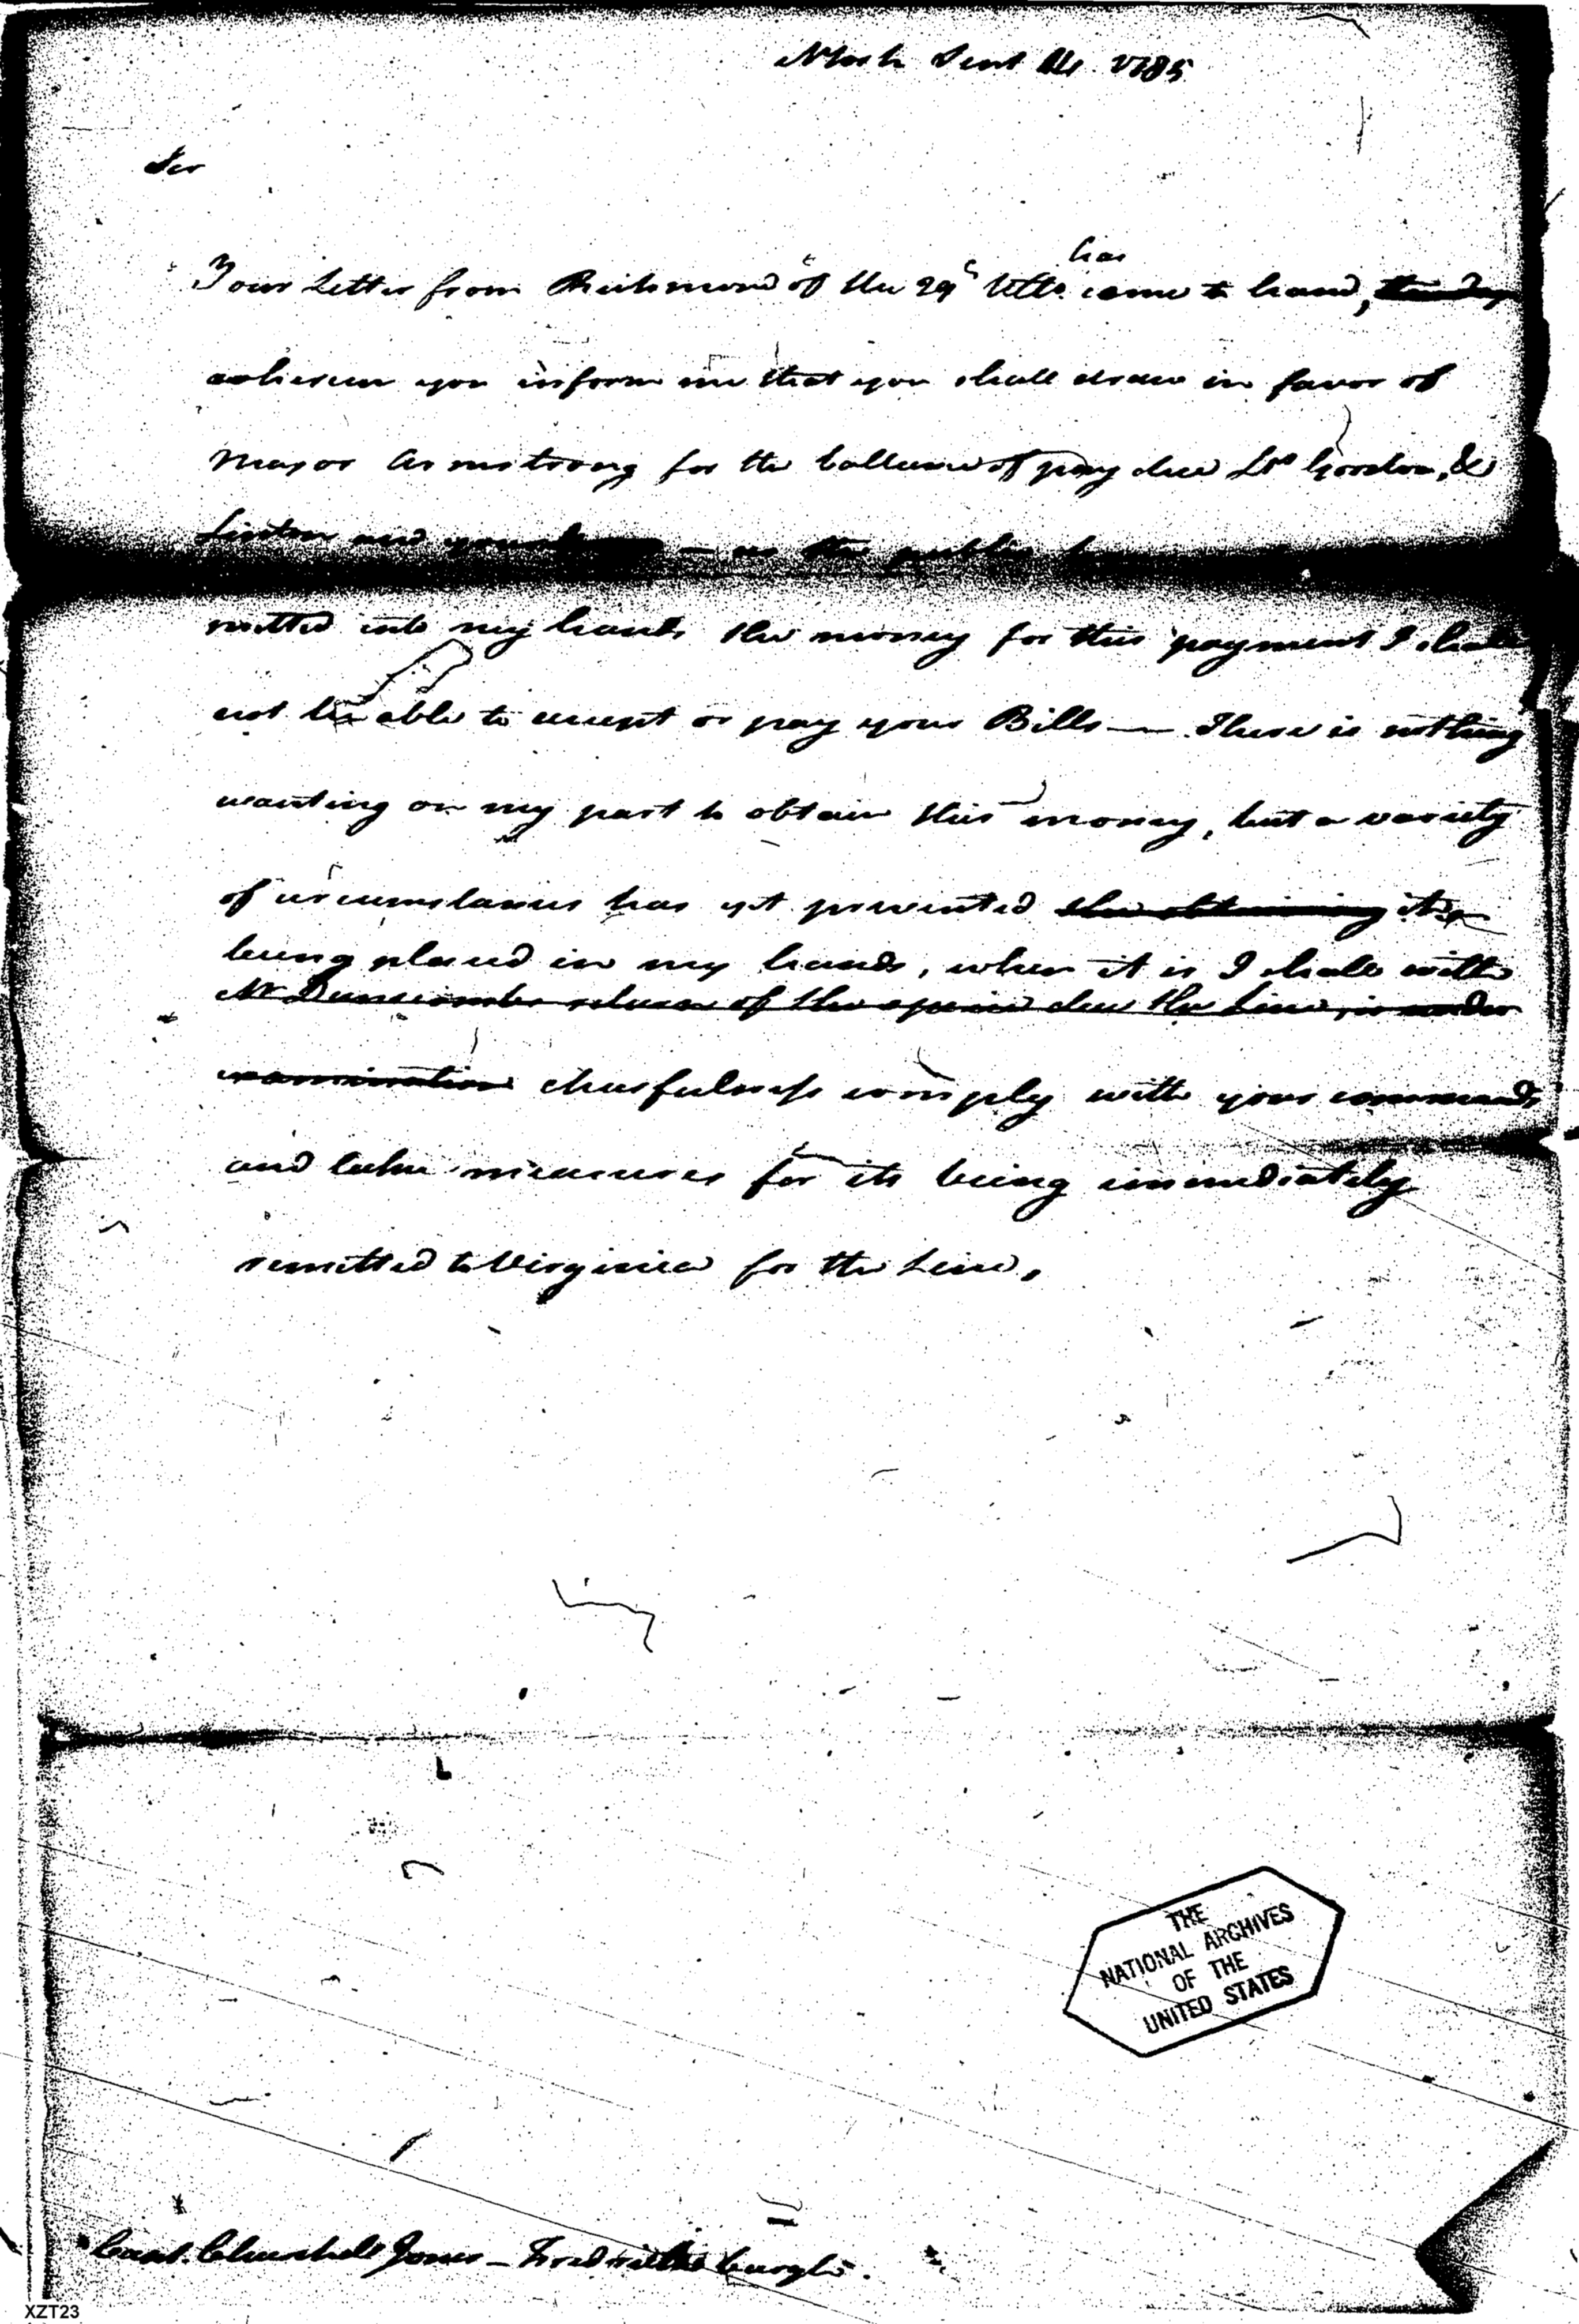 NYork Sept 14 1785
Sir
has
Your Letter from Richmond of the 29th Ulto. came to hand,
wherein you inform me that you shall draw in favor of
Major Armstrong for the ballance of pay due Lts Gordon, &
Linton and — as the public
mitted into my hands the money for this payment I shall
not be able to accept or pay your Bills — There is nothing
wanting on my part to obtain this money, but a variety
of circumstances has yet prevented the obtaining its
being placed in my hands, when it is I shall with
Mr Dunscombs return of the specie due the Line, is under
examination chearfulness comply with your commands
and take measures for its being immediately
remitted to Virginia for the Line.
THE
NATIONAL ARCHIVES
OF THE
UNITED STATES
Capt. Churchill Jones – Fredricksburgh.
XZT23